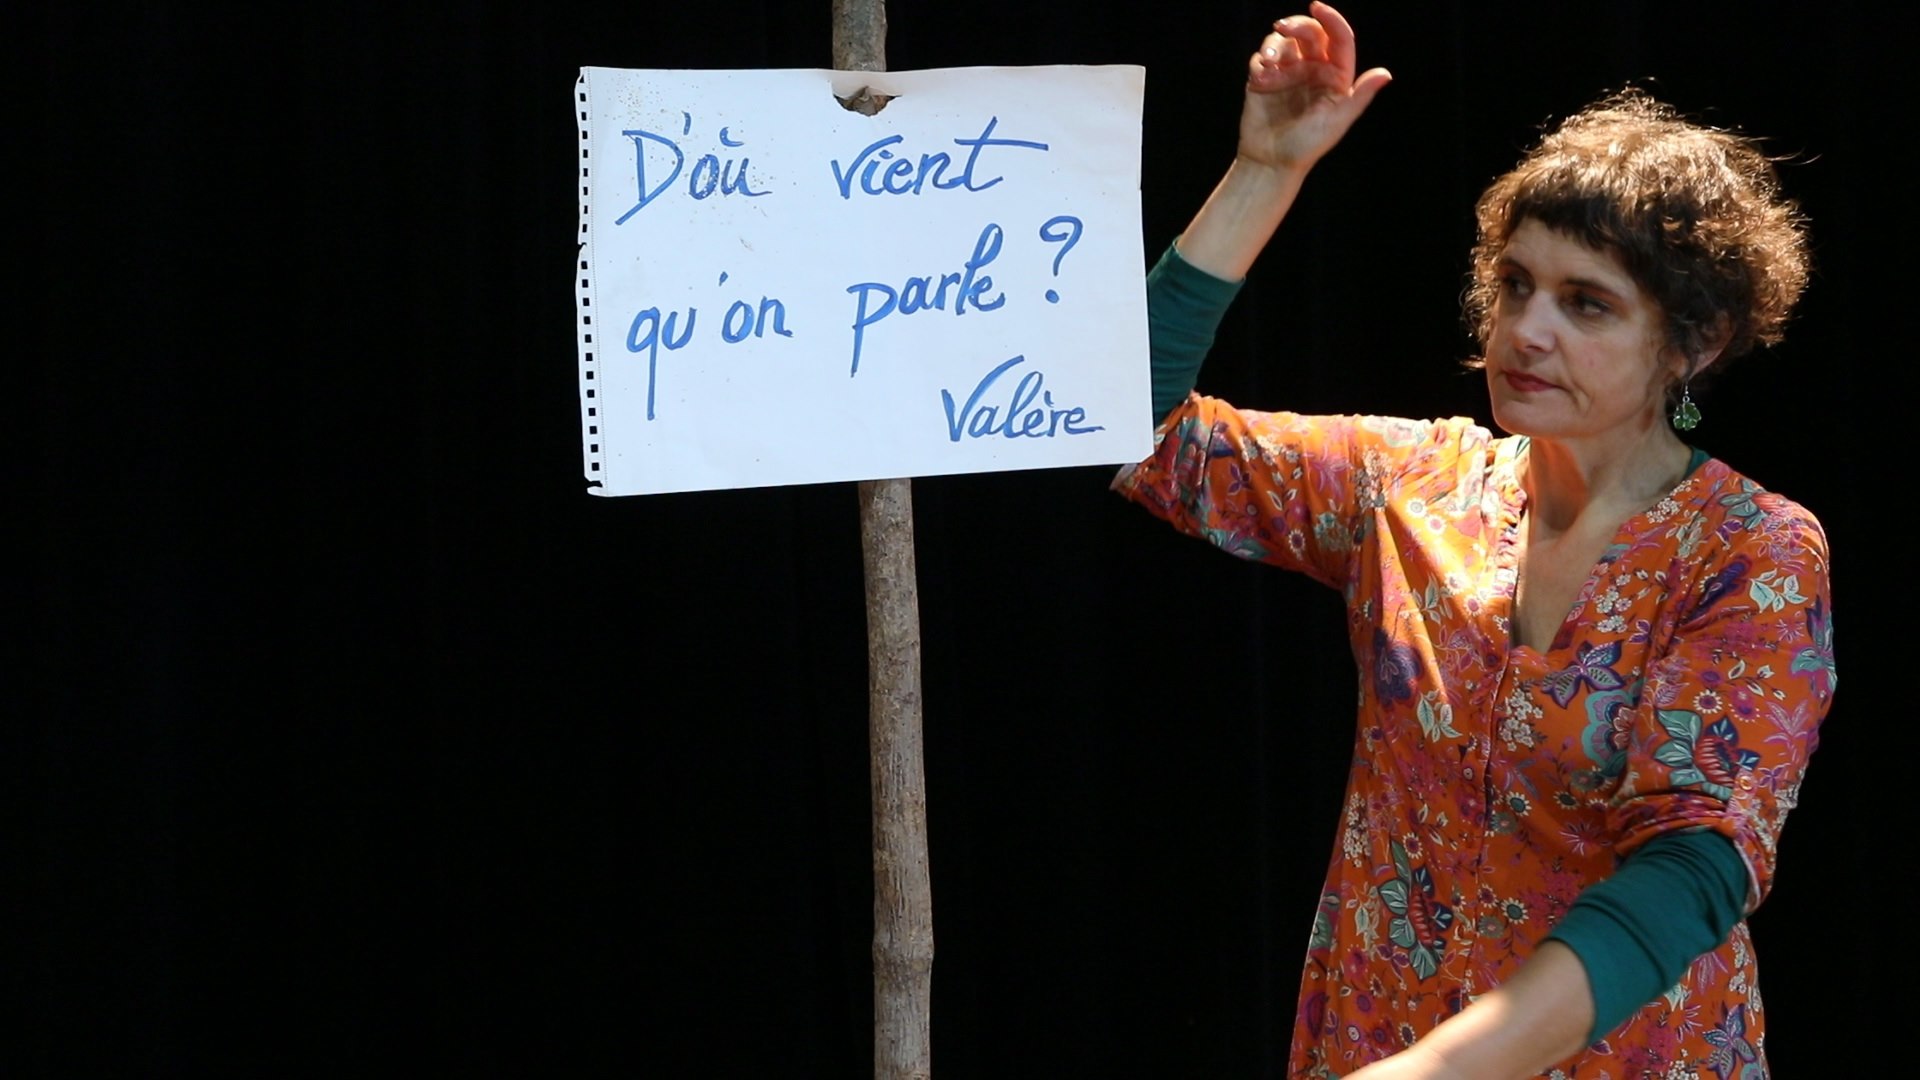 D'où vient
qu'on parle ?
Valère